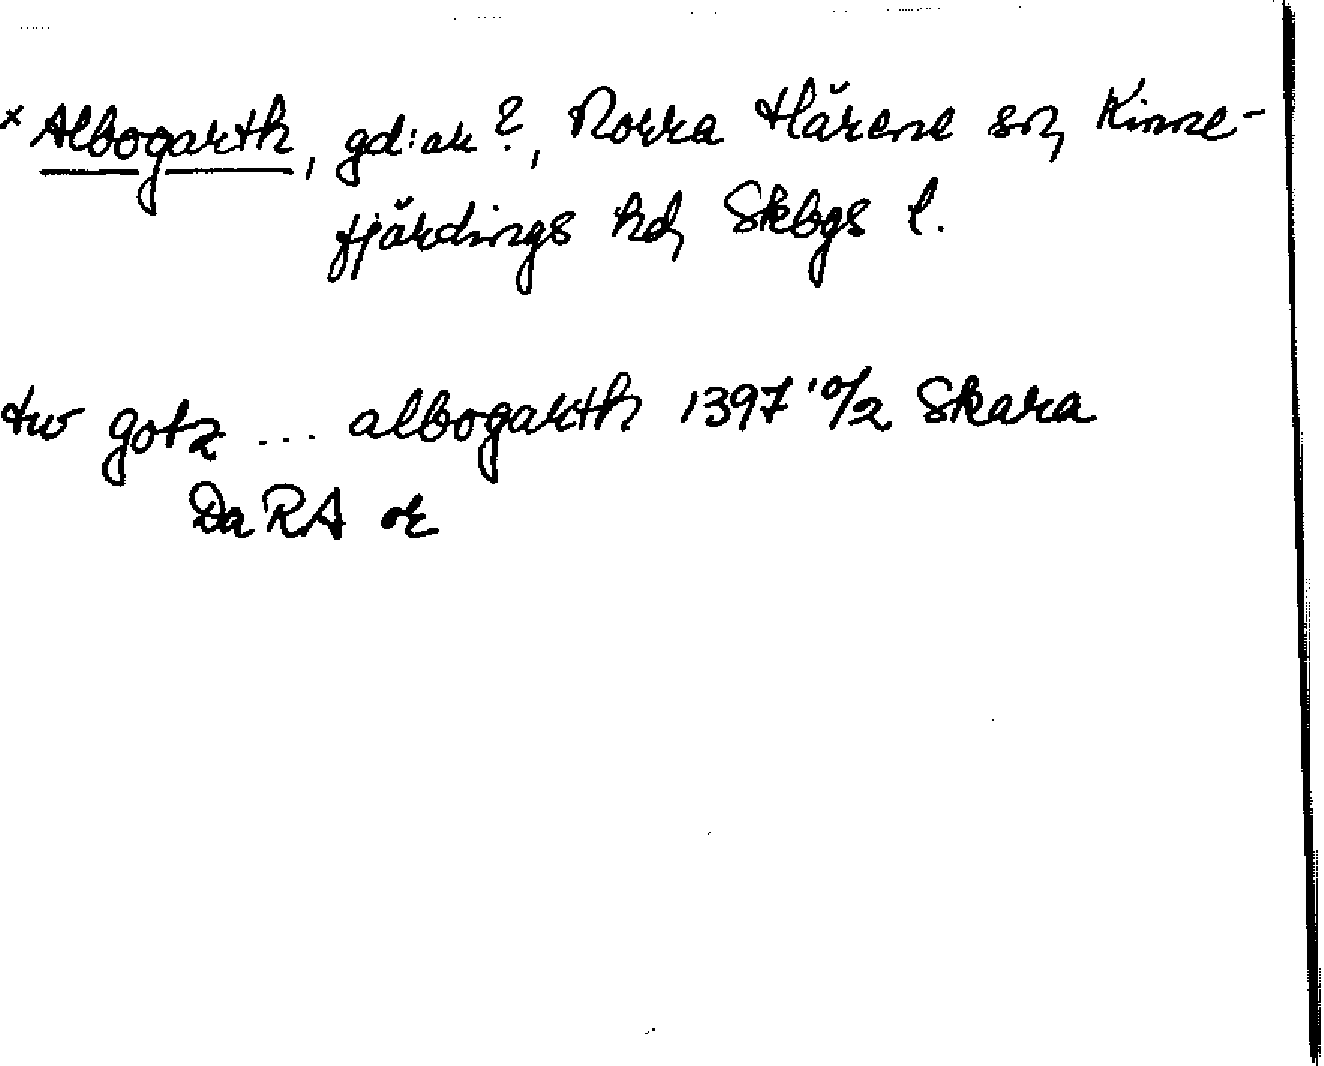 × Albogarth, gd:ar ?, Norra Härene sn, Kinne-
fjärdings hd, Skbgs l.
tw gotz ... albogarth 1397 10/2 Skara
DaRA or